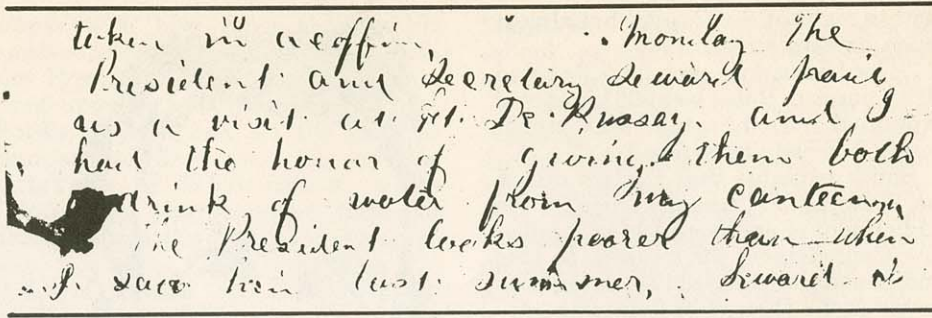 taken in a coffin, Monday the
President and Secretary Seward paid
us a visit at Ft. De Russay. and I
had the honar of giving, them both
drink of water from my canteen
The President looks poorer than when
I saw him last summer, Seward is